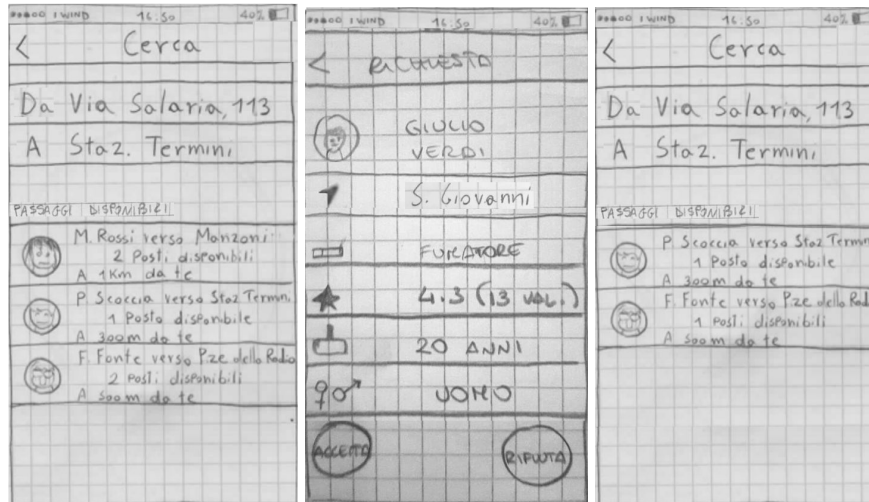 I WIND 16:50 40%
< Cerca
Da Via Salaria, 113
A Staz. Termini
PASSAGGI DISPONIBILI
M. Rossi verso Manzoni
2 Posti disponibili
A 1Km da te
P. Scoccia verso Staz Termin.
1 Posto disponibile
A 300m da te
F. Fonte verso P.ze della Radio
2 Posti disponibili
A 500m da te
I WIND 16:50 40%
< RICHIESTA
GIULIO
VERDI
S. Giovanni
FUMATORE
4.3 (13 VAL.)
20 ANNI
UOMO
ACCETTA
RIFIUTA
I WIND 16:50 40%
< Cerca
Da Via Salaria, 113
A Staz. Termini
PASSAGGI DISPONIBILI
P. Scoccia verso Staz Termin
1 Posto disponibile
A 300m da te
F. Fonte verso P.ze della Rad
1 Posti disponibili
A 500m da te